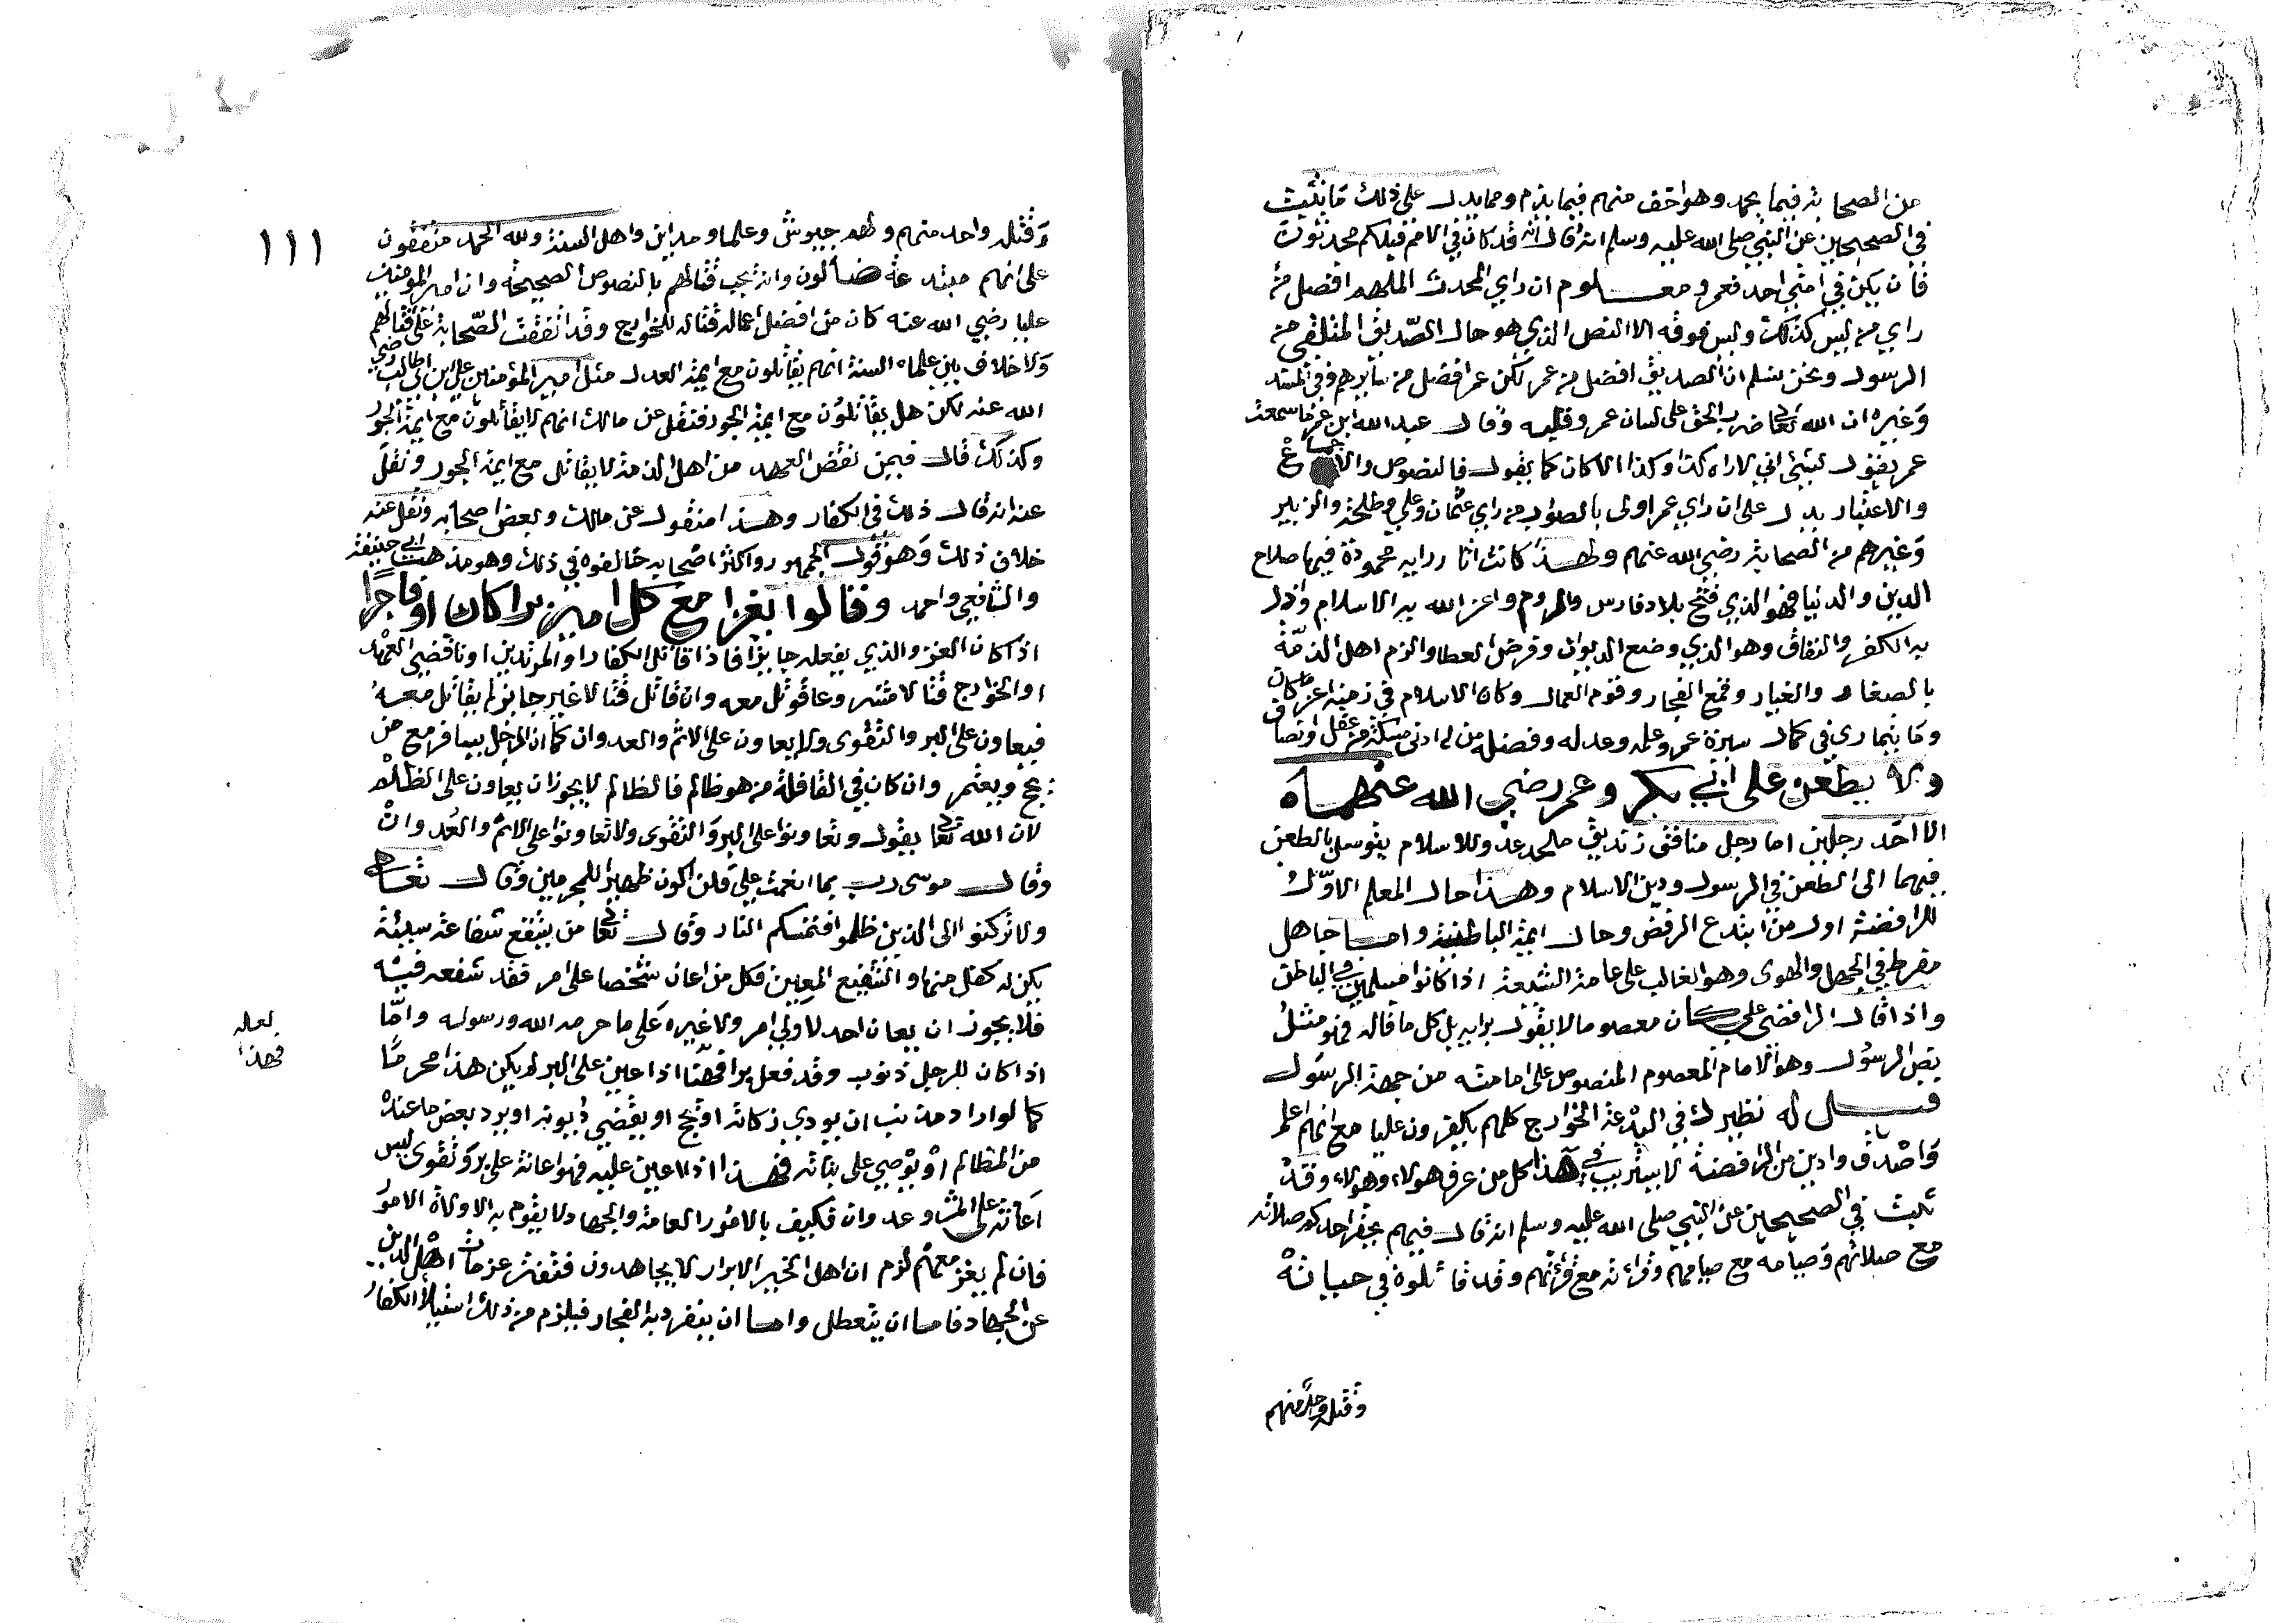 من الصحابة فيما يحمد وهو احق منهم فيما يذم ومما يدل على ذلك ما ثبت
في الصحيحين عن النبي صلى الله عليه وسلم انه قال انه قد كان في الامم قبلكم محدثون
فان يكن في امتي احد فعمر ومعلوم ان راي المحدث الملهم افضل من
راي من ليس كذلك وليس فوقه الا النص الذي هو حال الصديق المتلقي من
الرسول ونحن نسلم ان الصديق افضل من عمر لكن عمر افضل من سايرهم وفي المسند
وغيره ان الله تعا ضرب الحق على لسان عمر وقلبه وقال عبد الله ابن عمر ما سمعت
عمر يقول لشئ اني لاراه كذا وكذا الا كان كما يقول فالنصوص والاجماع
والاعتبار يدل على ان راي عمر اولى بالصواب من راي عثمان وعلي وطلحة والزبير
وغيرهم من الصحابة رضي الله عنهم ولهذا كانت اثار رايه محمودة فيها صلاح
الدين والدنيا فهو الذي فتح بلاد فارس والروم واعز الله به الاسلام واذل
به الكفر والنفاق وهو الذي وضع الديوان وفرض العطا والزم اهل الذمة
بالصغار والغيار وقمع الفجار وقوم العمال وكان الاسلام في زمنه اعز ما كان
وما يتمارى في كمال سيرة عمر وعلمه وعدله وفضله من له ادنى مسكة من عقل وانصاف
ولا يطعن على ابي بكر وعمر رضي الله عنهما
الا احد رجلين اما رجل منافق زنديق ملحد عدو للاسلام يتوسل بالطعن
فيهما الى الطعن في الرسول ودين الاسلام وهذا حال المعلم الاول
للرافضة اول من ابتدع الرفض وحال ايمة الباطنية واما جاهل
مفرط في الجهل والهوى وهو الغالب على عامة الشيعة اذا كانوا مسلمين في الباطن
واذا قال الرافضي علي كان معصوما لا يقول برايه بل كل ما قاله فهو مثل
نص الرسول وهو الامام المعصوم المنصوص على امامته من جهة الرسول
قيل له نظيرك في البدعة الخوارج كلهم يكفرون عليا مع انهم اعلم
واصدق وادين من الرافضة لا يستريب في هذا كل من عرف هولاء وهولاء وقد
ثبت في الصحيحين عن النبي صلى الله عليه وسلم انه قال فيهم يحقر احدكم صلاته
مع صلاتهم وصيامه مع صيامهم وقراءته مع قراءتهم وقد قاتلوه في حياته
وقتله واحد منهم
١١١
وقتله واحد منهم ولهم جيوش وعلما ومداين واهل السنة ولله الحمد متفقون
على انهم مبتدعة ضالون وانه يجب قتالهم بالنصوص الصحيحة وان امير المومنين
عليا رضي الله عنه كان من افضل اعماله قتاله للخوارج وقد اتفقت الصحابة على قتالهم
ولا خلاف بين علماء السنة انهم يقاتلون مع ايمة العدل مثل امير المؤمنين علي ابن ابي طالب رضي
الله عنه لكن هل يقاتلون مع ايمة الجور فنقل عن مالك انهم لا يقاتلون مع ايمة الجور
وكذلك قال فيمن نقض العهد من اهل الذمة لا يقاتل مع ايمة الجور ونقل
عنه انه قال ذلك في الكفار وهذا منقول عن مالك وبعض اصحابه ونقل عنه
خلاف ذلك وهو قول الجمهور واكثر اصحابه خالفوه في ذلك وهو مذهب ابي حنيفة
والشافعي واحمد وقالوا يغزا مع كل امير برا كان او فاجرا
اذا كان الغزو الذي يفعله جايزا فاذا قاتل الكفار او المرتدين او ناقضي العهد
او الخوارج قتالا مشروعا قوتل معه وان قاتل قتالا غير جايز لم يقاتل معه
فيعاون على البر والتقوى ولا يعاون على الاثم والعدوان كما ان الرجل يسافر مع من
يحج ويعتمر وان كان في القافلة من هو ظالم فالظالم لا يجوز ان يعاون على الظلم
لان الله تعا يقول وتعاونوا على البر والتقوى ولا تعاونوا على الاثم والعدوان
وقال موسى رب بما انعمت علي فلن اكون ظهيرا للمجرمين وقال تعالى
ولا تركنوا الى الذين ظلموا فتمسكم النار وقال تعا من يشفع شفاعة سيئة
يكن له كفل منها والشفيع المعين فكل من اعان شخصا على امر فقد شفعه فيه
فلا يجوز ان يعان احد لا ولي امر ولا غيره على ما حرمه الله ورسوله واما
اذا كان للرجل ذنوب وقد فعل برا فهذا اذا اعين على البر لم يكن هذا محرما
كما لو اراد مذنب ان يودي زكاته او يحج او يقضي ديونه او يرد بعض ما عنده
من المظالم او يوصي على بناته فهذا اذا اعين عليه فهو اعانة على بر وتقوى ليس
اعانة على اثم وعدوان فكيف بالامور العامة والجهاد لا يقوم به الا ولاة الامور
فان لم يغز معهم لزم ان اهل الخير الابرار لا يجاهدون فتفتر عزمات اهل الدين
عن الجهاد فاما ان يتعطل واما ان ينفرد به الفجار فيلزم من ذلك استيلا الكفار
لعله
فهذا